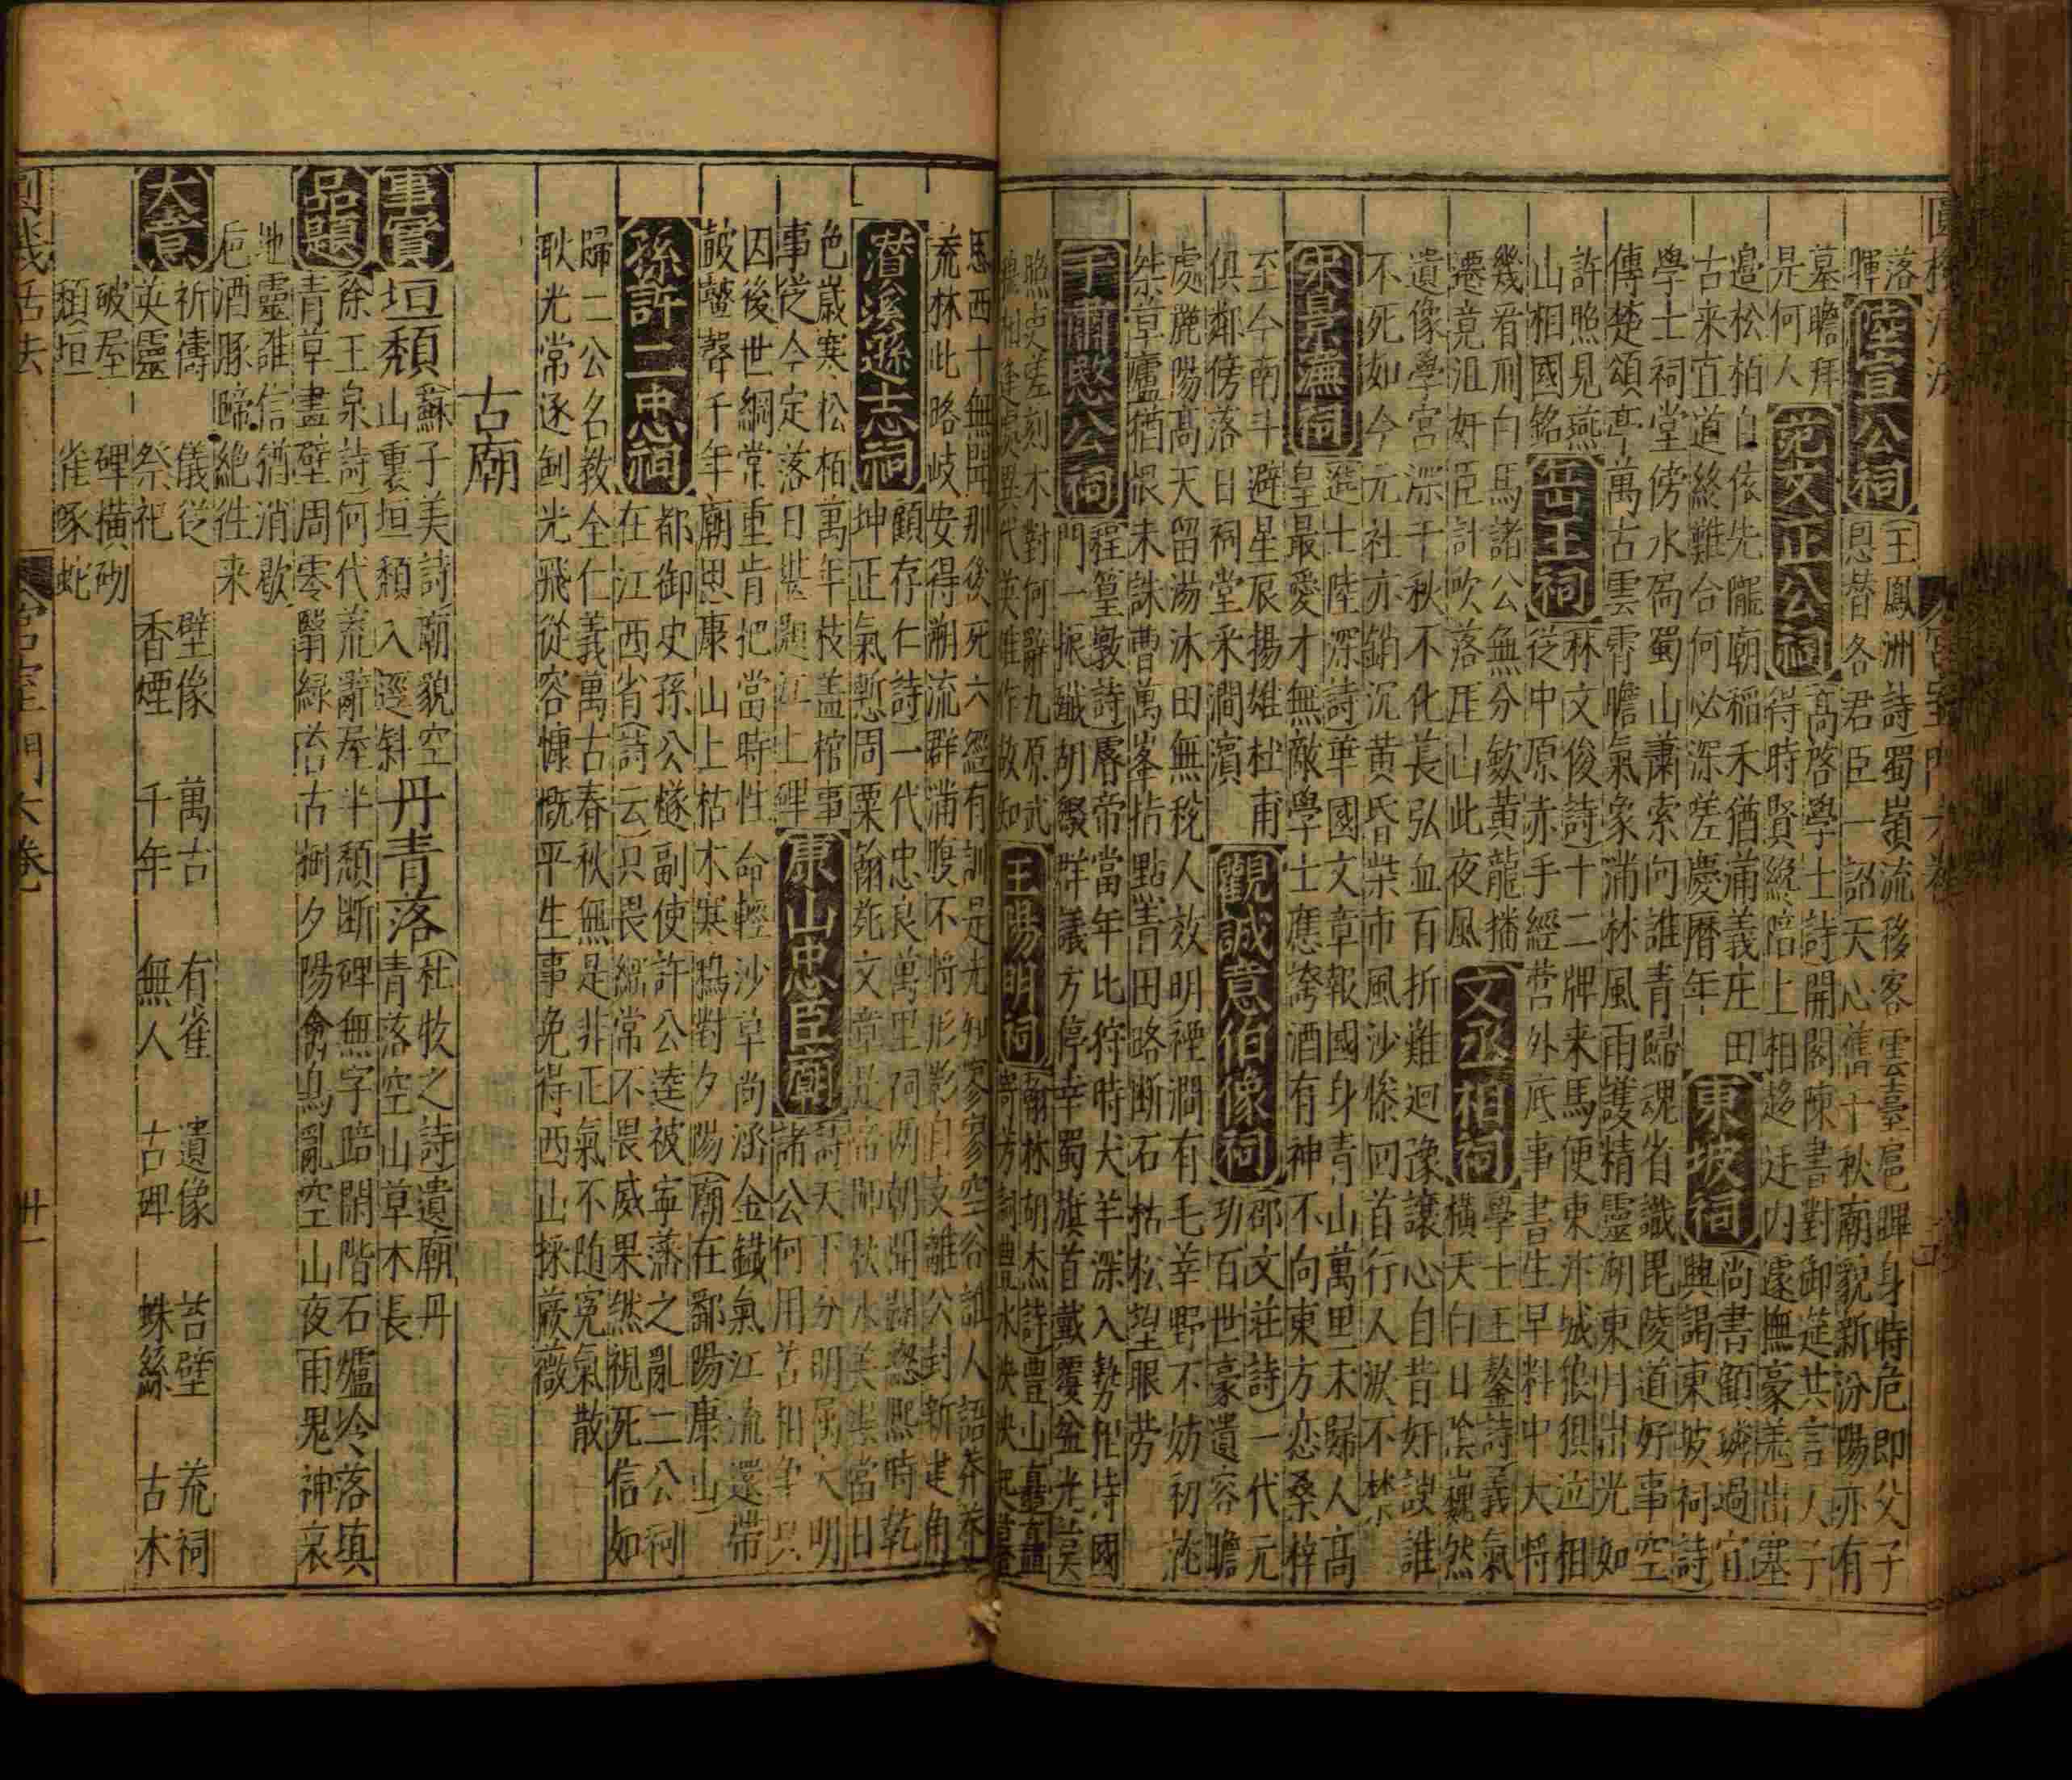 落 陸宣公祠 王鳳洲詩蜀嶺流移客雲臺扈暉身時危即父子
暉 恩昔各君臣一詔天心舊千秋廟貌新汾陽亦有
墓瞻拜 范文正公祠 高啓學士詩開閣陳書對御筵共言人子
是何人 得時賢縂陪上相趍廷内遽撫豪羌出塞
邉松柏自依先隴廟稻禾猶蒲義庄田 東坡祠 尚書顧璘過宜
古来直道終難合何必深嗟慶曆年 興謁東坡祠詩
學士祠堂傍水局蜀山蕭索向誰青歸魂省識毘陵道好事空
傳楚頌亭萬古雲霄瞻氣象滿林風雨護精靈湖東月出光如
許照見燕 岳王祠 林文俊詩十二牌来馬便東汴城狼狽泣相
山相國銘 從中原赤手經营外底事書生早料中大將
幾看刑白馬諸公無分歃黄龍播 文丞相祠 學士王鏊詩義氣
遷竟沮奸臣計吹落厓山此夜風 橫天白日陰巍然
遺像學宫深千秋不化萇弘血百折難迴豫讓心自昔奸諛誰
不死如今元社亦銷沉黄昏柴市風沙慘回首行人淚不禁
宋景濂祠 進士陸深詩華國文章報國身青山萬里未歸人高
皇最愛才無敵學士應誇酒有神不向東方恋桑梓
至今南斗避星辰揚雄杜甫 觀誠意伯像祠 邵文莊詩一代元
俱鄰傍落日祠堂采澗濵 功百世豪遺容瞻
處麗陽高天留湯沐田無稅人效明禋澗有毛莘野不妨初詫
桀草廬猶畏未誅曹萬峯拈點青田路断石枯松望眼勞
于肅愍公祠 程篁墩詩辱帝當年比狩時犬羊深入勢徂恃國
門一振殱胡綴群議方停幸蜀旗首戴覆盆光
照史嗟刻木對何辭九原武 王陽明祠 翰林胡杰詩豊山矗
相逢處異代英雄作故知 寄芳詞豊水泱泱起
馬西十無聞那後死六經有訓是先知寥寥空谷誰人語莽莽
荒林此略岐安得溯流群滿腹不將形影自支離公封新建角
潜溪遜志祠 顧存仁詩一代忠良萬里祠兩朝開濟愍熙時乾
坤正氣慙周粟翰苑文章是帝師秋水美當日
色嵗寒松栢萬年枝盖棺事 康山忠臣廟 詩天下分明属大明
事從今定落日悲題江上碑 諸公何用苦相争只
因後世綱常重肯把當時性命輕沙草尚涵金鐵氣江流還帶
皷鼙聲千年廟思康山上枯木寒鴉對夕陽廟在鄱陽康山
孫許二忠祠 都御史孫公燧副使許公逵被寧藩之亂二公祠
在江西省詩云只畏綱常不畏威果然視死信如
歸二公名教全仁義萬古春秋無是非正氣不随冤氣散
耿光常逐劍光飛從容慷慨平生事免得西山採蕨薇
古廟
事實 垣頽 蘇子美詩廟貌空山裏垣頽入逕斜 丹青落 杜牧之詩遺廟丹青落空山草木長
品題 徐王泉詩何代荒辭屋半頽断碑無字暗閑階石爐灰冷落填
青草畫壁周零翳緑苔古樹夕陽禽鳥亂空山夜雨鬼神哀
地靈誰信猶消歇
卮酒豚蹄絶徃来
大意 祈禱 儀從 壁像 萬古 有雀 遺像 苔壁 荒祠
英靈 祭祀 香煙 千年 無人 古碑 蛛絲 古木
破屋 碑横砌
頽垣 雀啄蛇